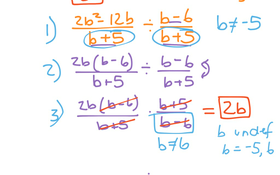 1) (2b² - 12b)/(b+5) ÷ (b-6)/(b+5) b ≠ -5
2) 2b(b-6)/(b+5) ÷ (b-6)/(b+5)
3) 2b(b-6)/(b+5) · (b+5)/(b-6) = 2b
b ≠ 6
b undef
b = -5, 6